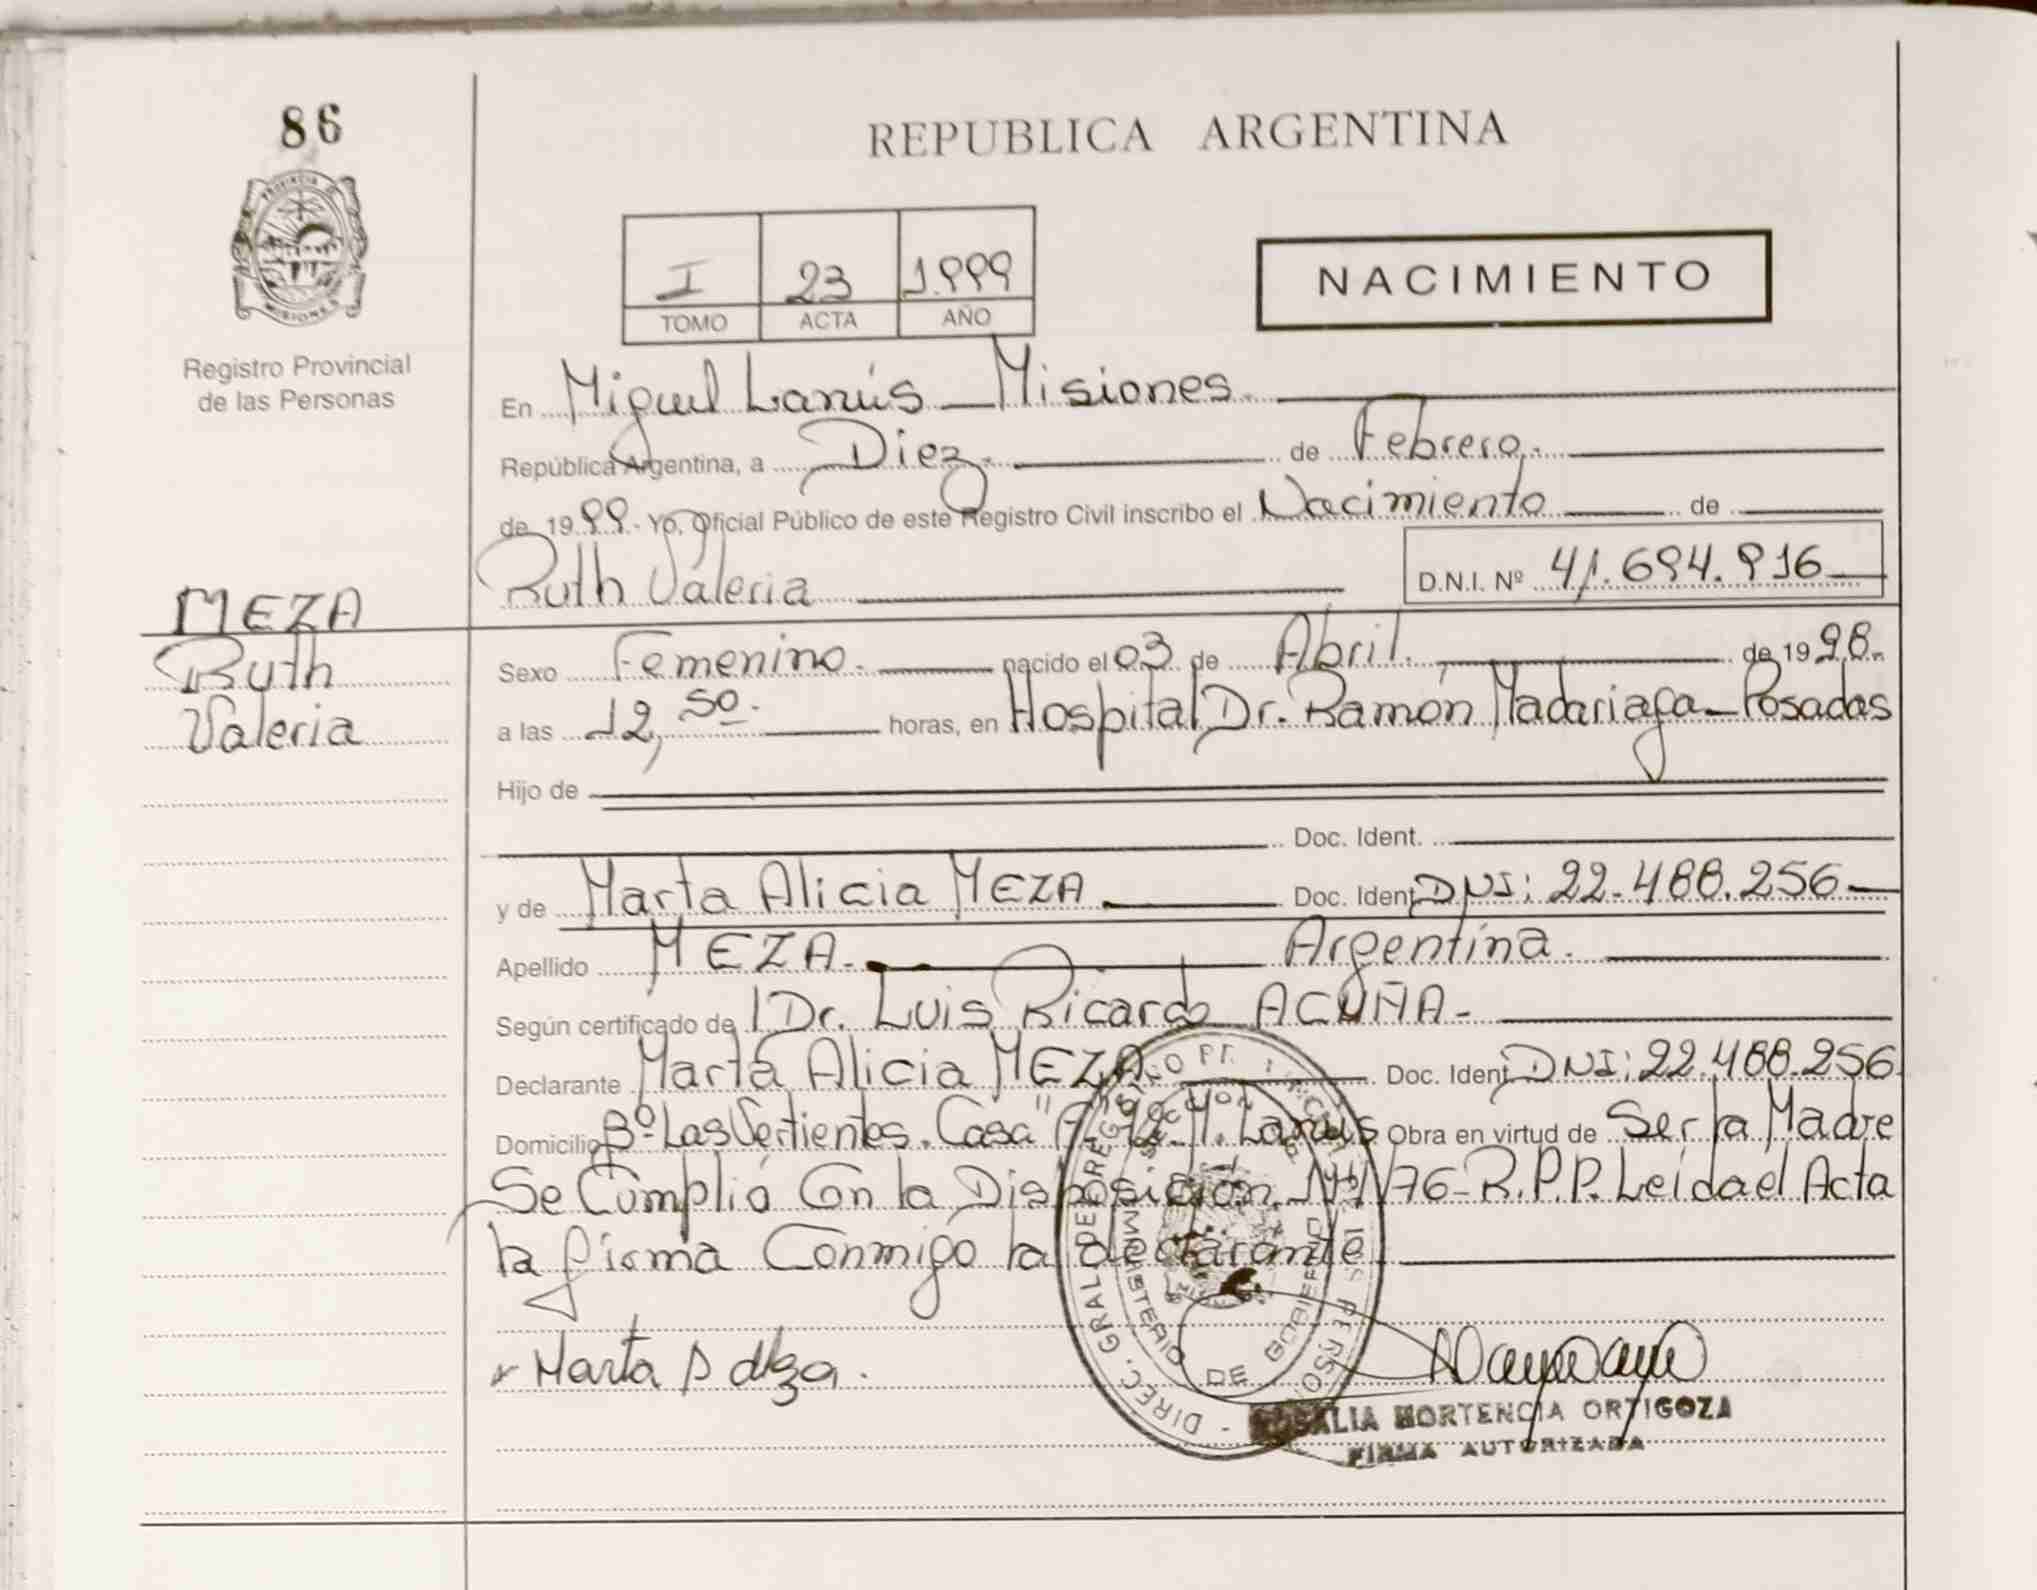 86
REPUBLICA ARGENTINA
PROVINCIA DE
MISIONES
Registro Provincial
de las Personas
I 23 1.999
TOMO ACTA AÑO
NACIMIENTO
En Miguel Lanús Misiones.
República Argentina, a Diez. de Febrero.
de 1999. Yo, Oficial Público de este Registro Civil inscribo el Nacimiento de
Ruth Valeria D.N.I. Nº 41.694.916
MEZA
Ruth
Valeria
Sexo Femenino. nacido el 03 de Abril. de 1998.
a las 12,50. horas, en Hospital Dr. Ramón Madariaga Posadas
Hijo de
Doc. Ident.
y de Marta Alicia MEZA Doc. Ident. DNI: 22.488.256
Apellido MEZA. Argentina.
Según certificado de Dr. Luis Ricardo ACUÑA-
Declarante Marta Alicia MEZA Doc. Ident. DNI: 22.488.256
Domicilio Bº Las Vertientes. Casa M. Lanús Obra en virtud de Ser la Madre
Se Cumplió Con la Disposición /76-R.P.P. Leída el Acta
la firma Conmigo la declarante
Marta
DIREC. GRAL. DE REGISTRO
MINISTERIO DE GOBIERNO
ROSALIA HORTENCIA ORTIGOZA
FIRMA AUTORIZADA